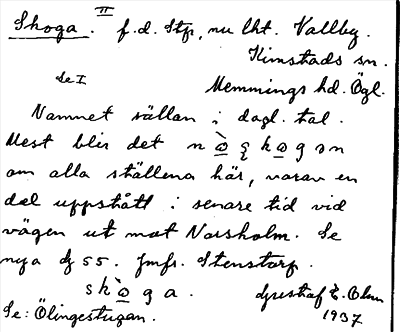 Skoga. II f.d. Stp, nu lht. Vallby.
Kimstads sn.
Se I Memmings hd. Ögl.
Namnet sällan i dagl. tal.
Mest blir det
om alla ställena här, varav en
del uppstått i senare tid vid
vägen ut mot Norsholm. Se
nya 55. Jmfr. Stenstorp.
skò̲ga. Gustaf E. Olun
Se: Ölingestugan. 1937